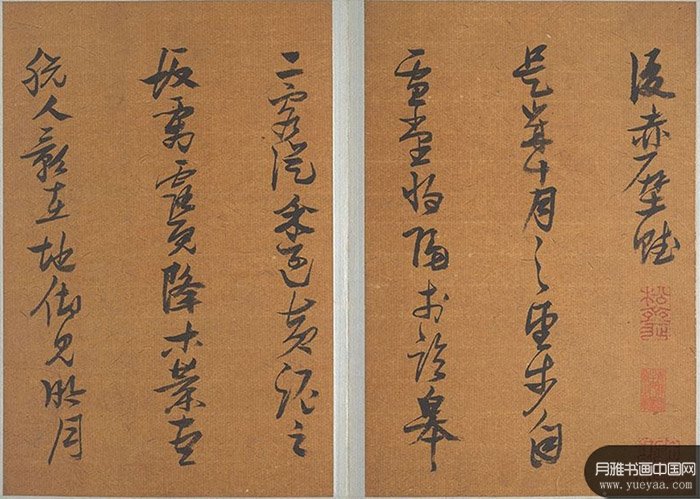 後赤壁賦
是歲十月之望步自
雪堂將歸于臨皋
二客從余過黃泥之
坂霜露既降木葉盡
脫人影在地仰見明月
月雅书画中国网
www.yueyaa.com